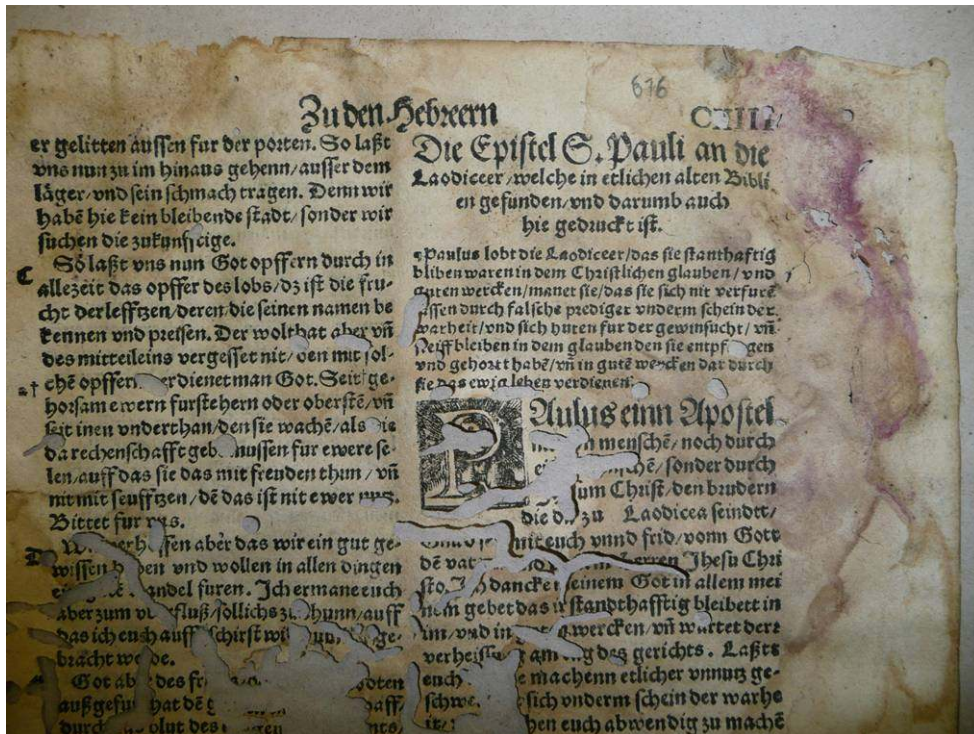 676
Zu den Hebreern
CIIII
er gelitten aussen fur der porten. So laßt
vns nun zu im hinaus gehenn/ausser dem
läger/vnd sein schmach tragen. Denn wir
habē hie kein bleibende stadt/sonder wir
suchen die
So laßt vns nun Got opffern durch in
allezeit das opffer des lobs/dz ist die fru-
cht der lefftzen/deren/die seinen namen be
kennen vnd preisen. Der wolthat aber vñ
des mitteileins vergesset nit/ den mit sol-
chē opffern man Got. Seit ge-
horsam ewern furstehern oder oberstē/vñ
seit inen vnderthan/den sie wachē/als die
da rechenschafft mussen fur ewere se-
len/auff das sie das mit freuden thun/vñ
nit mit seufftzen/dē das ist nit ewer nutz.
Bittet fur vns.
aber das wir ein gut ge-
wissen vnd wollen in allen dingen
furen. Ich ermane euch
aber zum sollichs auff
das ich euch auff schirst
bracht werde.
Got des
hat
des
Die Epistel S. Pauli an die
Laodiceer/welche in etlichen alten Bibli
en gefunden/vnd darumb auch
hie gedruckt ist.
Paulus lobt die Laodiceer/das sie standhafftig
bliben waren in dem Christlichen glauben/vnd
guten wercken/manet sie/das sie sich nit verfurē
lassen durch falsche prediger vnderm schein der
warheit/vnd sich huten fur der gewinsucht/vñ
steiff bleiben in dem glauben den sie
vnd gehort habē/vñ in gutē wercken dar durch
sie das ewig leben verdienen.
PAulus einn Apostel
menschē/noch durch
sonder durch
Christ/den brudern
die zu Laodicea seindt/
mit euch vnnd frid/vonn Gott
dē herren Jhesu Chri
sto. Ich dancke meinem Got in allem mei
nem gebet das ir standthafftig bleibett in
im/vnd in wercken/vñ wartet derr
am tag des gerichts. Laßts
euch machenn etlicher vnnutz ge-
sich vnderm schein der warhe
euch abwendig zu machē